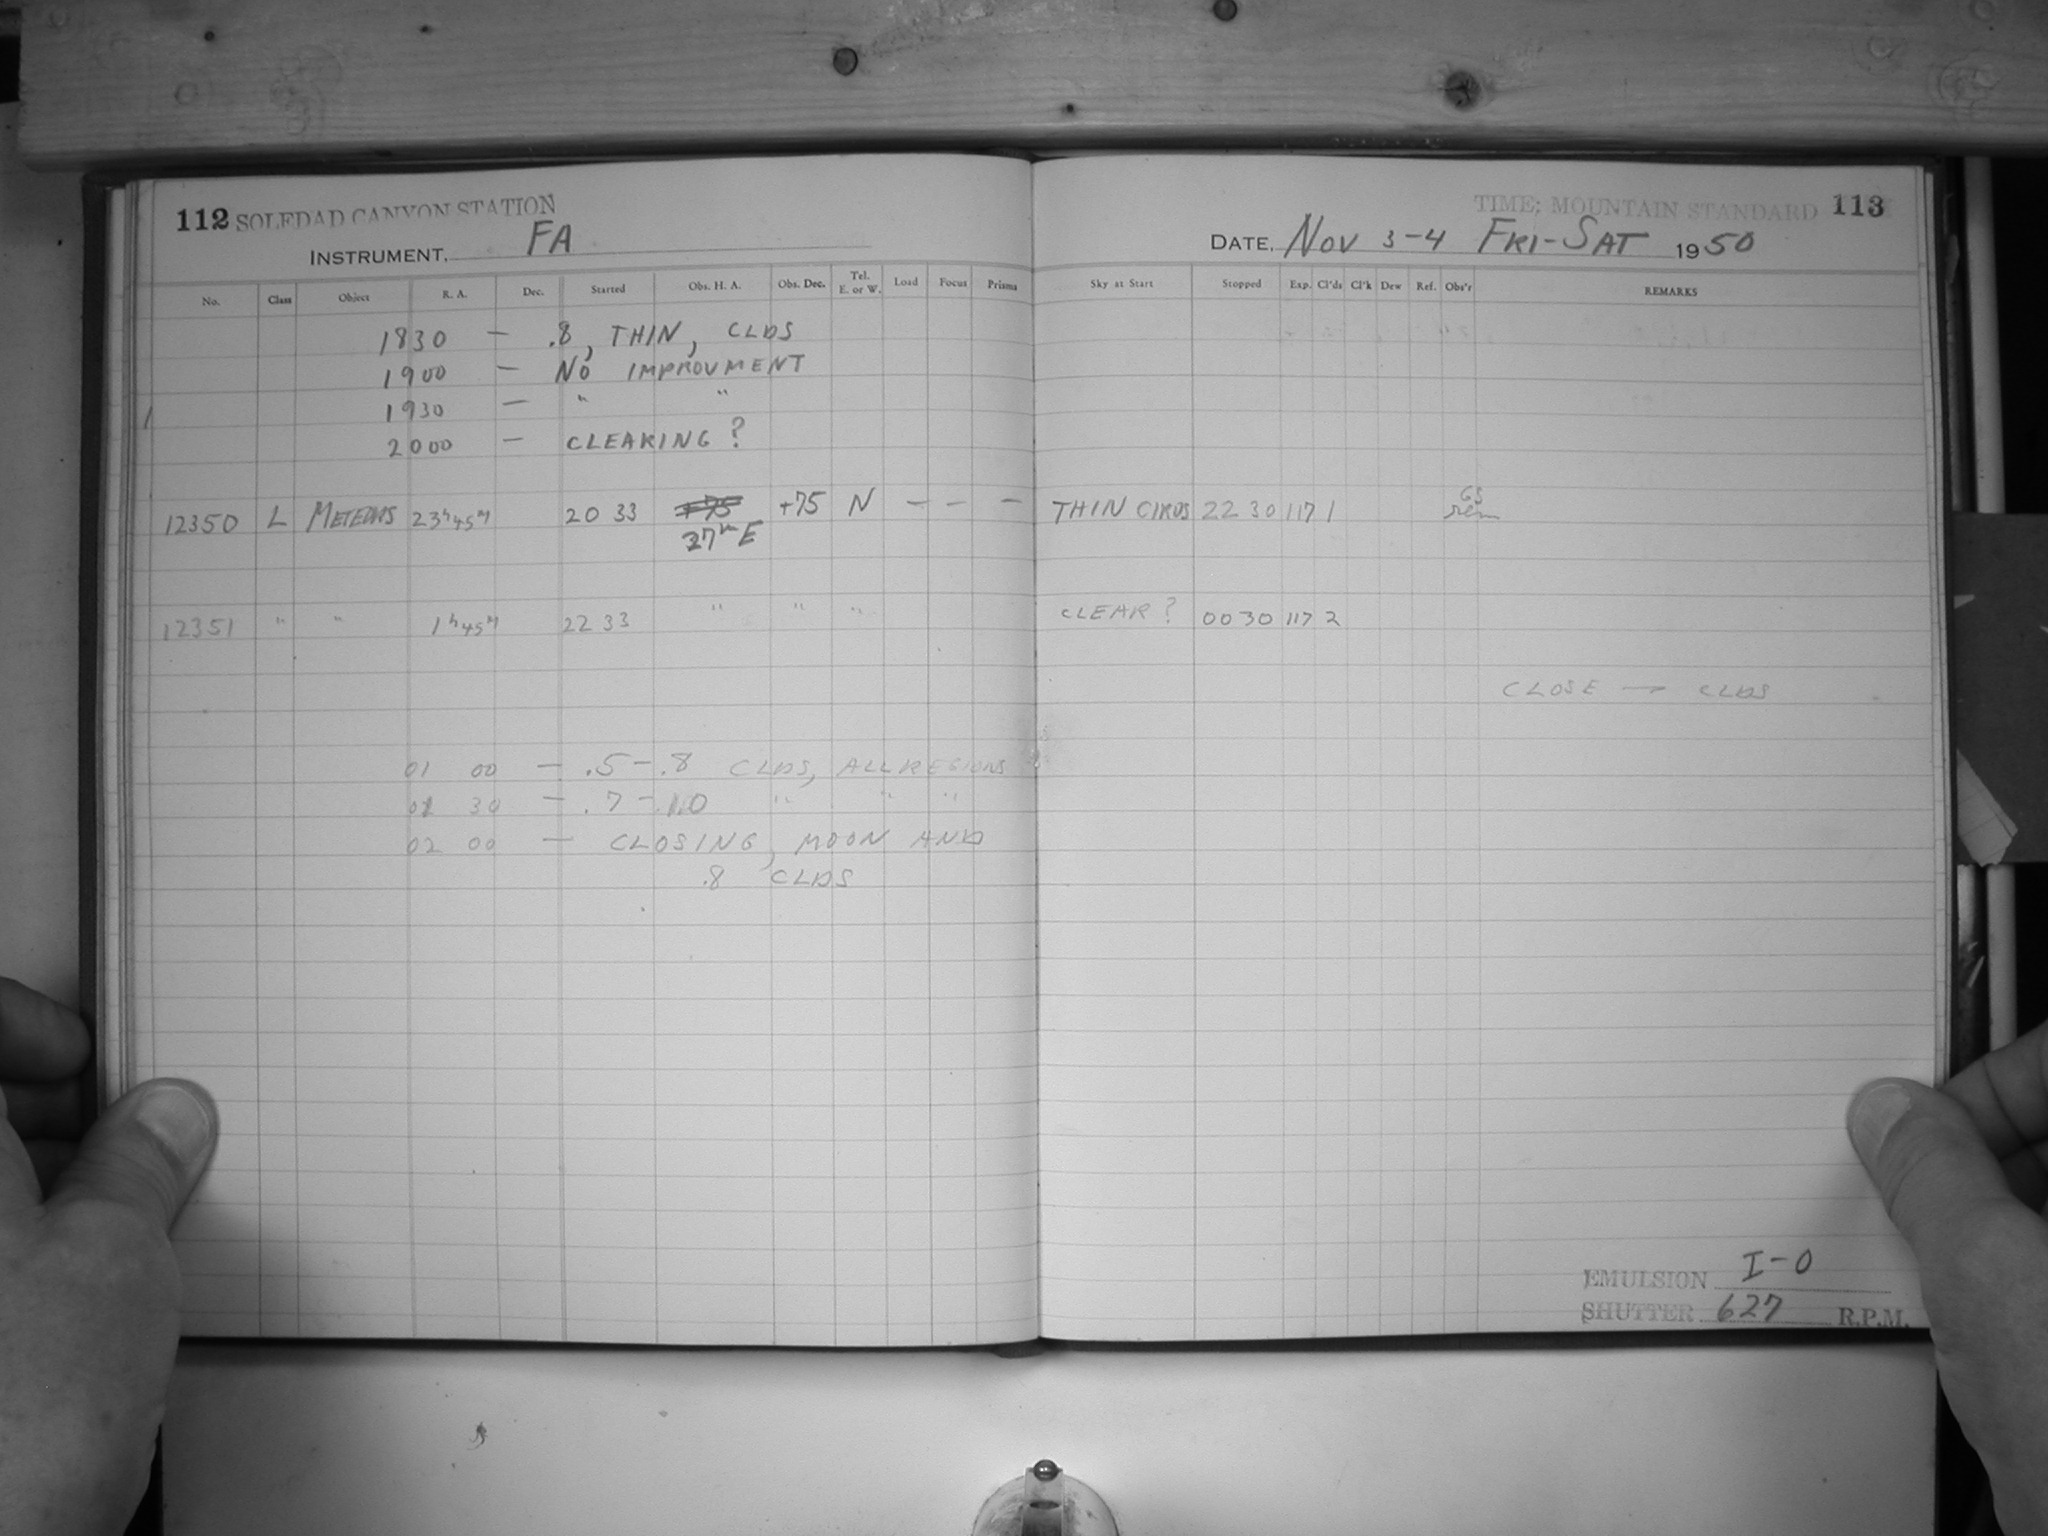 112 SOLEDAD CANYON STATION
INSTRUMENT, FA
No. Class Object R. A. Dec. Started Obs. H. A. Obs. Dec. Tel. E. or W. Load Focus Prisms
1830 — .8, THIN, CLDS
1900 — NO IMPROVMENT
1930 — " "
2000 — CLEARING?
12350 L METEORS 23h45m 20 33 +75 N — — —
37m E
12351 " " 1h45m 22 33 " " "
01 00 — .5-.8 CLDS, ALL REGIONS
01 30 — .7-1.0 " " "
02 00 — CLOSING, MOON AND
.8 CLDS
TIME; MOUNTAIN STANDARD 113
DATE, NOV 3-4 FRI-SAT 1950
Sky at Start Stopped Exp. Cl'ds Cl'k Dew Ref. Obs'r REMARKS
GS
THIN CIRUS 22 30 117 1
CLEAR? 00 30 117 2
CLOSE — CLDS
EMULSION I-O
SHUTTER 627 R.P.M.